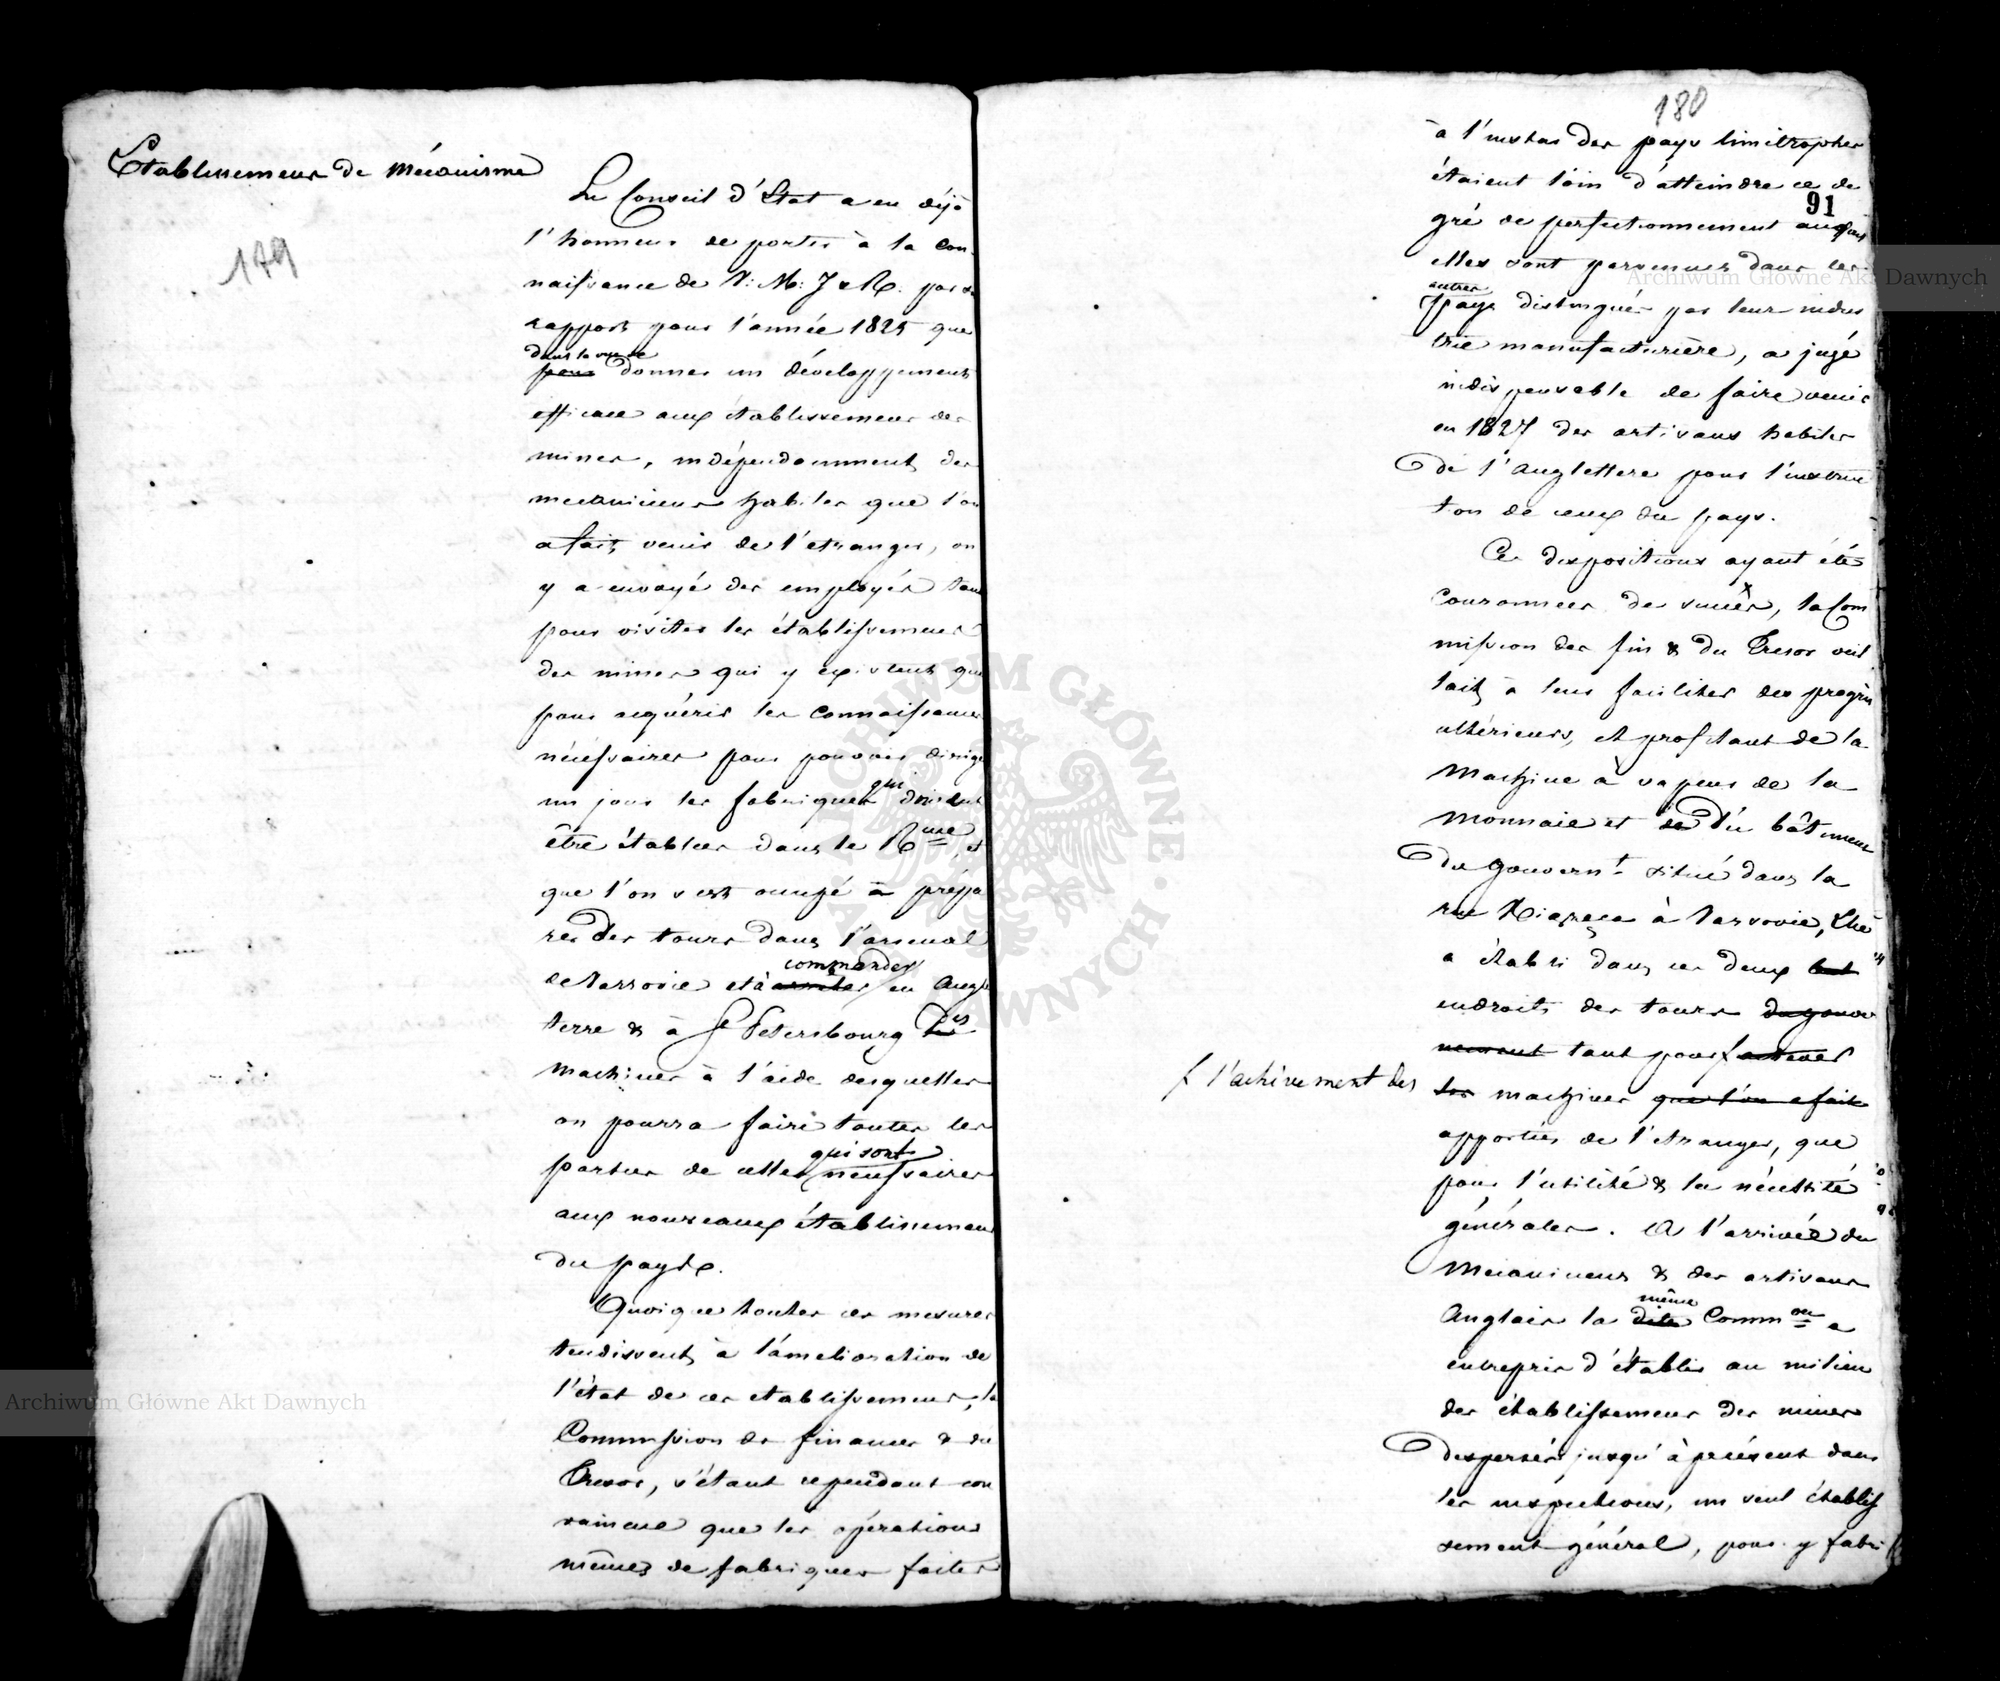 Etablissemens de Mécanisme
179
Le Conseil d'Etat a eu déjà
l'honneur de porter à la con
naissance de V: M: J & R. par le
rapport pour l'année 1825 que
dans la vue de
pour donner un développement
efficace aux établissemens des
mines, indépendamment des
mecaniciens habiles que l'on
a fait venir de l'etranger, on
y a envoyé des employés tant
pour visiter les établissemens
des mines qui y existent que
pour acquérir les connaissances
nécessaires pour pouvoir dirige
un jour les fabriques qui doivent
être établies dans le Rme, et
que l'on s'est occupé à prépa
rer des tours dans l'arsenal
commander
de Varsovie et à en Angle
terre & à St Petersbourg des
machines à l'aide desquelles
on pourra faire toutes les
qui sont
parties de celles nécessaires
aux nouveaux établissemens
du pays.
Quoique toutes ces mesures
tendissent à l'amélioration de
l'état de ces etablissemens, la
Commission des finances & du
Tresor, s'étant cependant con
vaincue que les opérations
mêmes de fabriques faites
180
91
à l'instar des pays limitrophes
étaient loin d'atteindre ce de
gré de perfectionnement auquel
elles sont parvenues dans les
autres
pays distingués par leur indus
trie manufacturière, a jugé
indispensable de faire venir
en 1827 des artisans habiles
de l'Anglettere pour l'instruc
tion de ceux du pays.
Ces dispositions ayant été
couronnées de succès, la Com
mission des fin & du Tresor veil
lait à leur faciliter des progrès
ultérieurs, et profitant de la
Machine à vapeur de la
Monnaie et du bâtiment
du gouvernt situé dans la
rue Xiązęca à Varsovie, Elle
a établi dans ces deux
endroits des tours du gouver
nement tant pour achever
f l'achèvement des
les machines que l'on a fait
apportées de l'etranger, que
pour l'utilité & la nécessité
générales. A l'arrivée des
Mecaniciens & des artisans
même
Anglais la dite Common a
entrepris d'établir au milieu
des établissemens des mines
dispersés jusqu'à présent dans
les inspections, un seul établis
sement général, pour y fabri
Archiwum Główne Akt Dawnych
Archiwum Główne Akt Dawnych
ARCHIWUM GŁÓWNE AKT DAWNYCH